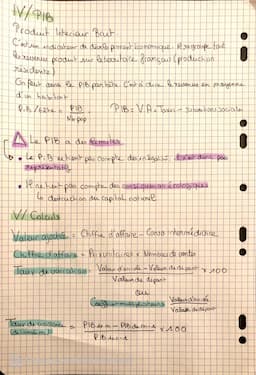 IV/ PIB
Produit Intérieur Brut
C'est un indicateur de développement économique. Il regroupe tout
le revenu produit sur le territoire français (production
résidente)
On peut avoir le PIB par tête. C'est à dire le revenu en moyenne
d'un habitant
P.I.B/tête = PIB / Nb pop PIB = V.A + Taxes - subventions
Le PIB a des limites
• Le P.I.B ne tient pas compte des inégalités. Il n'est donc pas
représentatif
• Il ne tient pas compte des conséquences écologiques
la destruction du capital naturel
V/ Calculs
Valeur ajoutée = Chiffre d'affaire - Conso intermédiaire
Chiffre d'affaire = Prix unitaires x Nombres de ventes
Taux de variation = Valeur d'arrivée - Valeur de départ / Valeur de départ x 100
ou
Coefficient multiplicateur Valeur d'arrivée / Valeur de départ
Taux de croissance
= PIB de n - PIB de n-1 / PIB de n-1 x 100